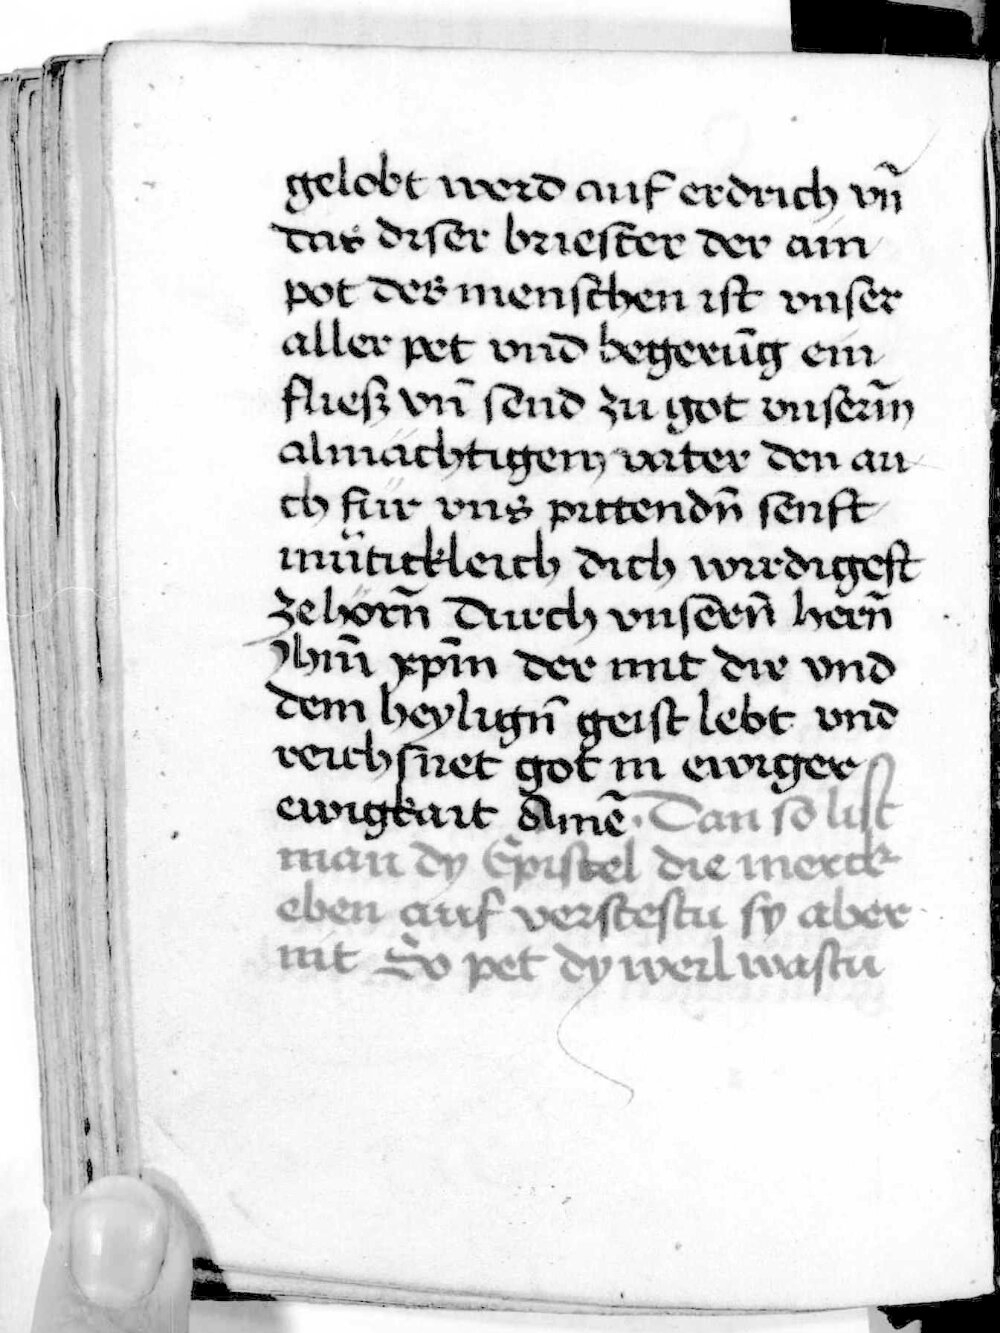 gelobt werd auf erdrich vn̄
das diser briester der ain
pot des menschen ist vnser
aller pet vnd begerūg ein
fliesz vn̄ send zu got vnserm̄
almächtigem vater den au
ch für vns pittendn̄ senft
mütickleich dich wirdigest
ze hörn̄ durch vnsern̄ hern̄
Jhm̄ xp̄m der mit dir vnd
dem heylign̄ geist lebt vnd
reichsnet got in ewiger
ewigkait Amē. Dan so list
man dy Epistel die merck
eben auf verstestu sy aber
nit So pet dy weil wastu